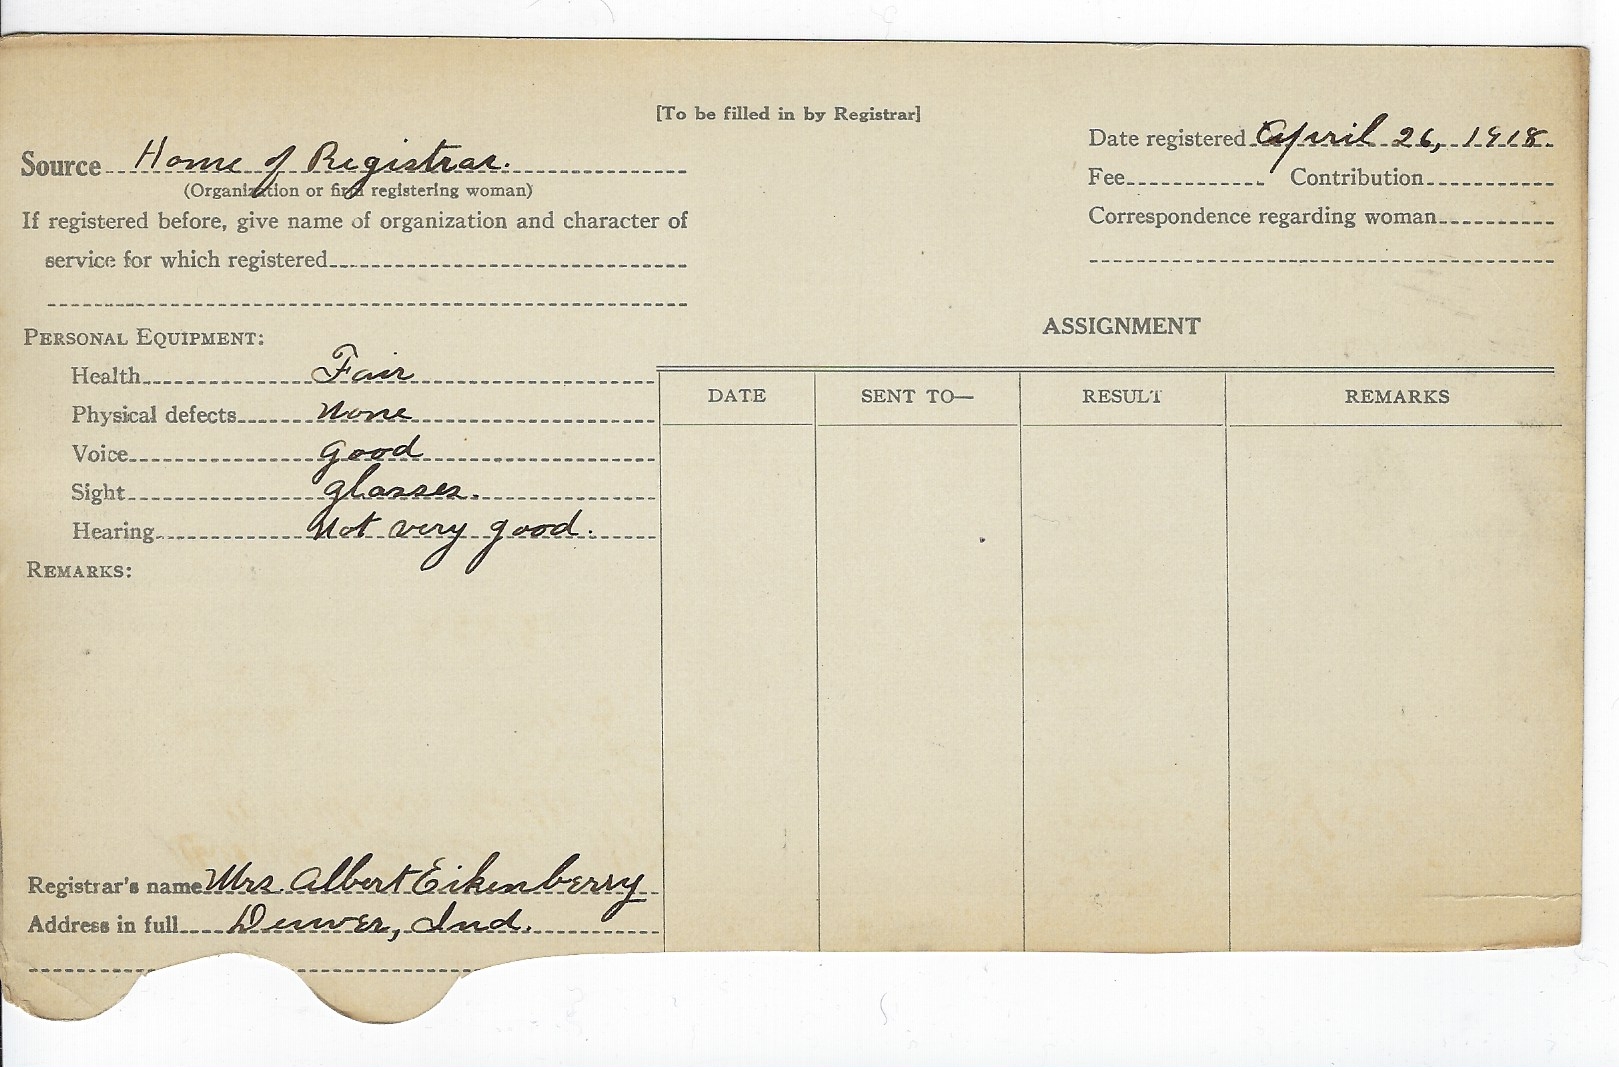 [To be filled in by Registrar]
Source Home of Registrar.
(Organization or firm registering woman)
If registered before, give name of organization and character of
service for which registered
Date registered April 26, 1918.
Fee Contribution
Correspondence regarding woman
PERSONAL EQUIPMENT:
Health Fair
Physical defects None
Voice good
Sight glasses.
Hearing Not very good.
REMARKS:
Registrar's name Mrs. Albert Eikenberry
Address in full Denver, Ind.
ASSIGNMENT
DATE SENT TO— RESULT REMARKS